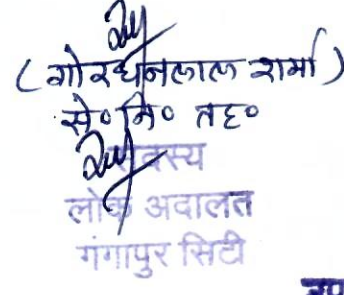 (गोरधनलाल शर्मा)
से० नि० तह०
सदस्य
लोक अदालत
गंगापुर सिटी